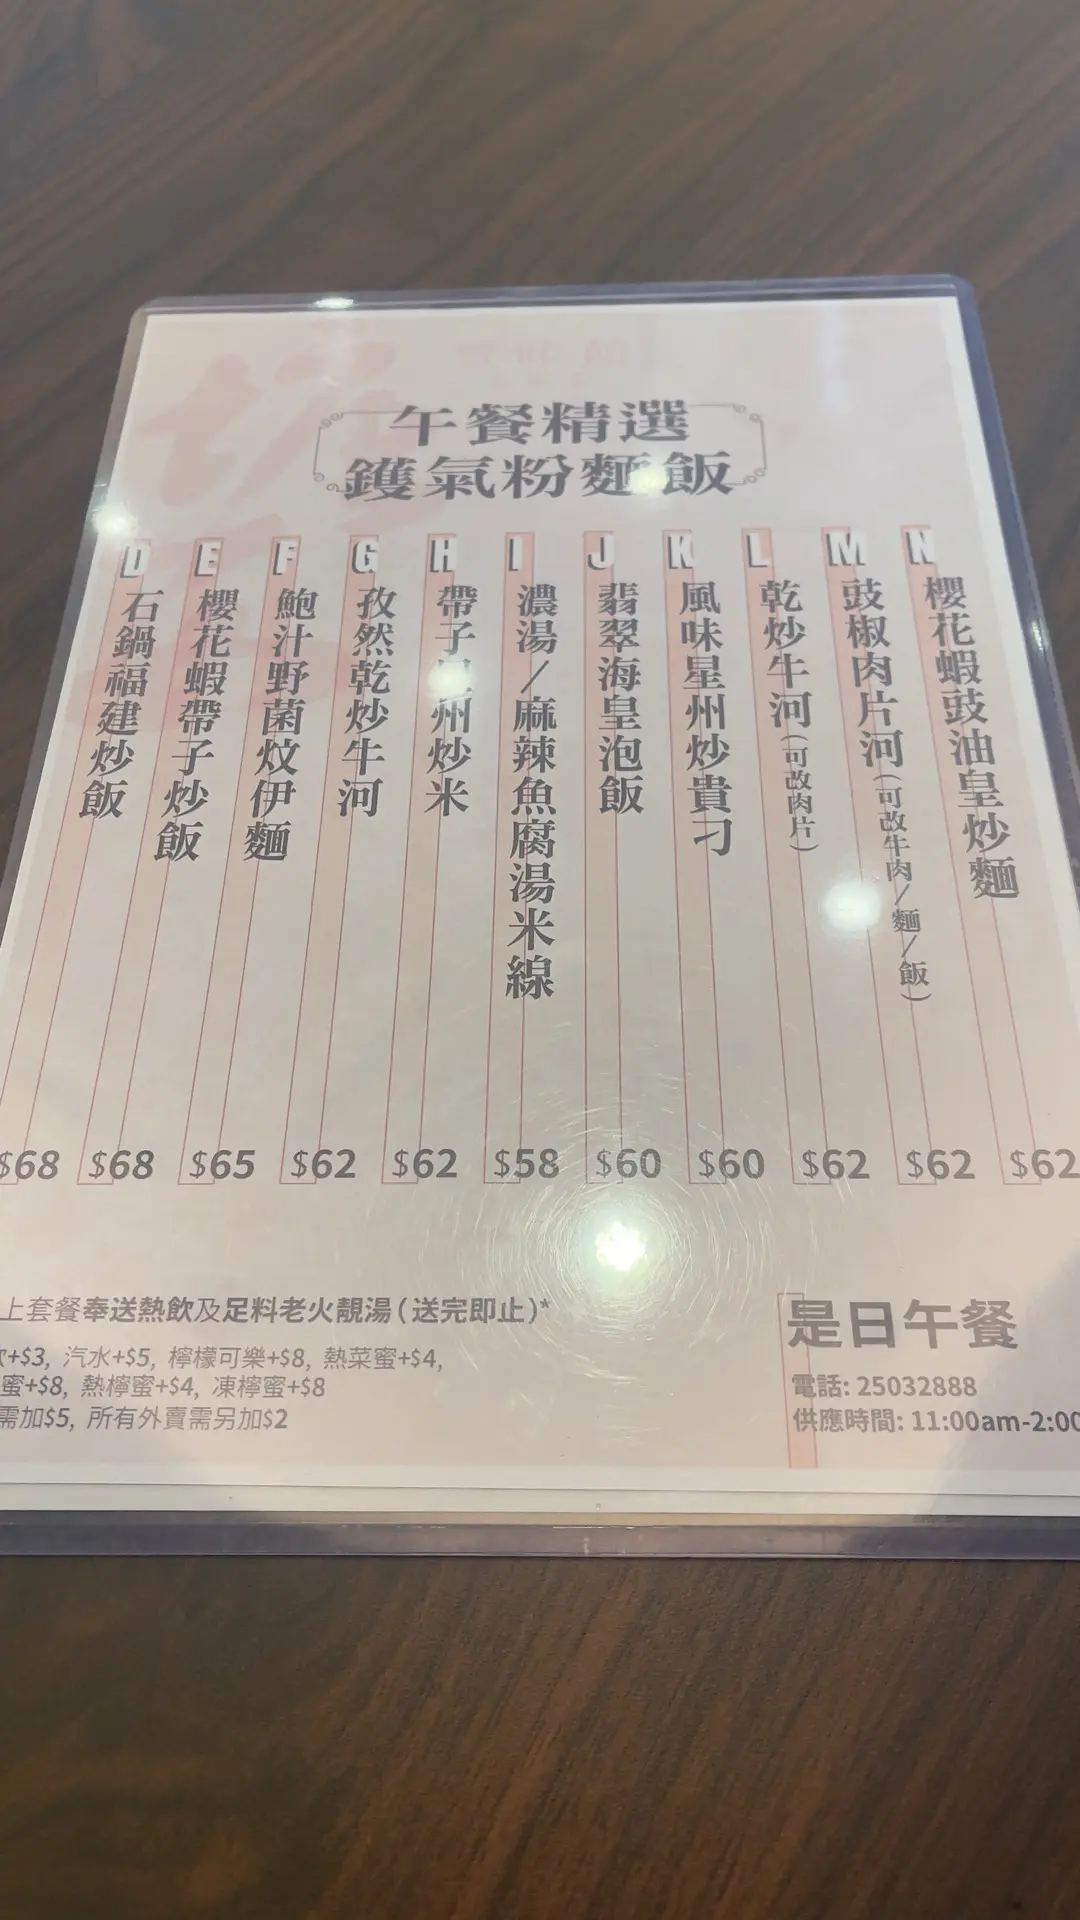 午餐精選
鑊氣粉麵飯
D 石鍋福建炒飯 $68
E 櫻花蝦帶子炒飯 $68
F 鮑汁野菌炆伊麵 $65
G 孜然乾炒牛河 $62
H 帶子 州炒米 $62
I 濃湯/麻辣魚腐湯米線 $58
J 翡翠海皇泡飯 $60
K 風味星州炒貴刁 $60
L 乾炒牛河(可改肉片) $62
M 豉椒肉片河(可改牛肉/麵/飯) $62
N 櫻花蝦豉油皇炒麵 $62
上套餐奉送熱飲及足料老火靚湯(送完即止)*
+$3, 汽水+$5, 檸檬可樂+$8, 熱菜蜜+$4,
蜜+$8, 熱檸蜜+$4, 凍檸蜜+$8
需加$5, 所有外賣需另加$2
是日午餐
電話: 25032888
供應時間: 11:00am-2:00